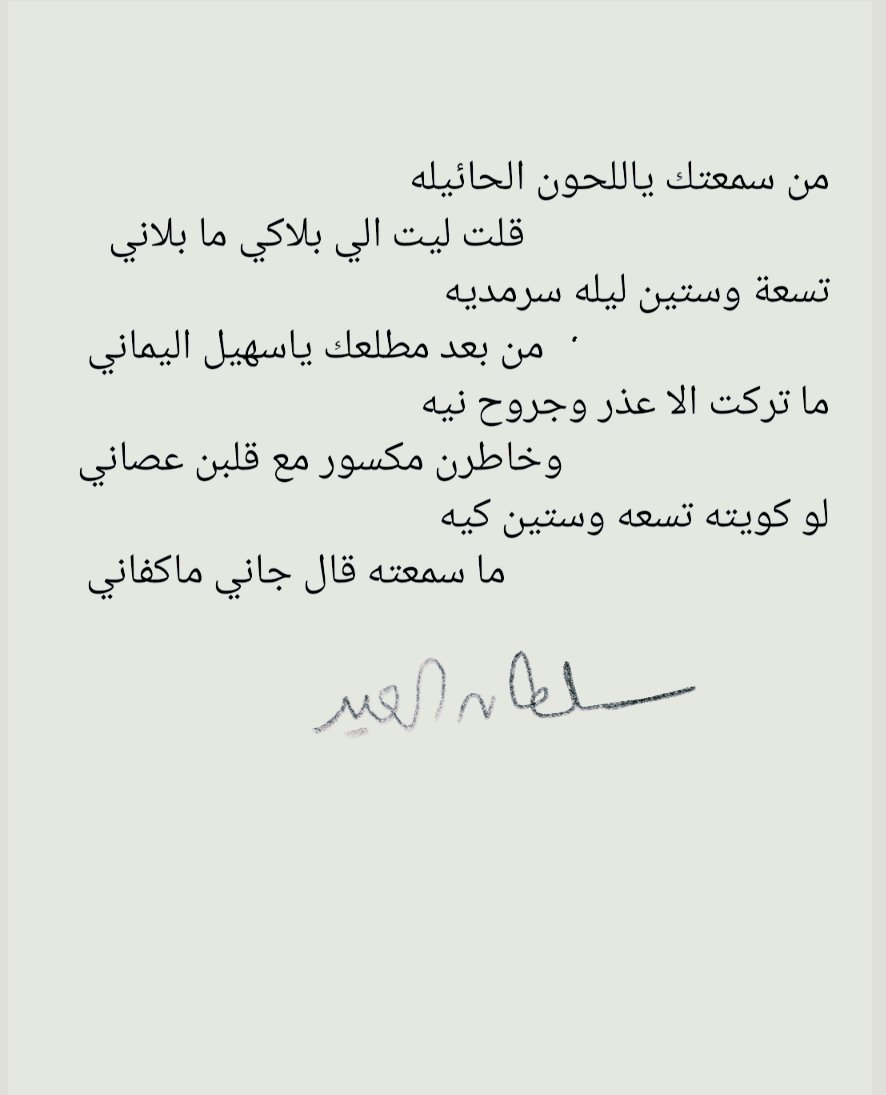 من سمعتك ياللحون الحائيله
قلت ليت الي بلاكي ما بلاني
تسعة وستين ليله سرمديه
من بعد مطلعك ياسهيل اليماني
ما تركت الا عذر وجروح نيه
وخاطرن مكسور مع قلبن عصاني
لو كويته تسعه وستين كيه
ما سمعته قال جاني ماكفاني
سلطان العيد